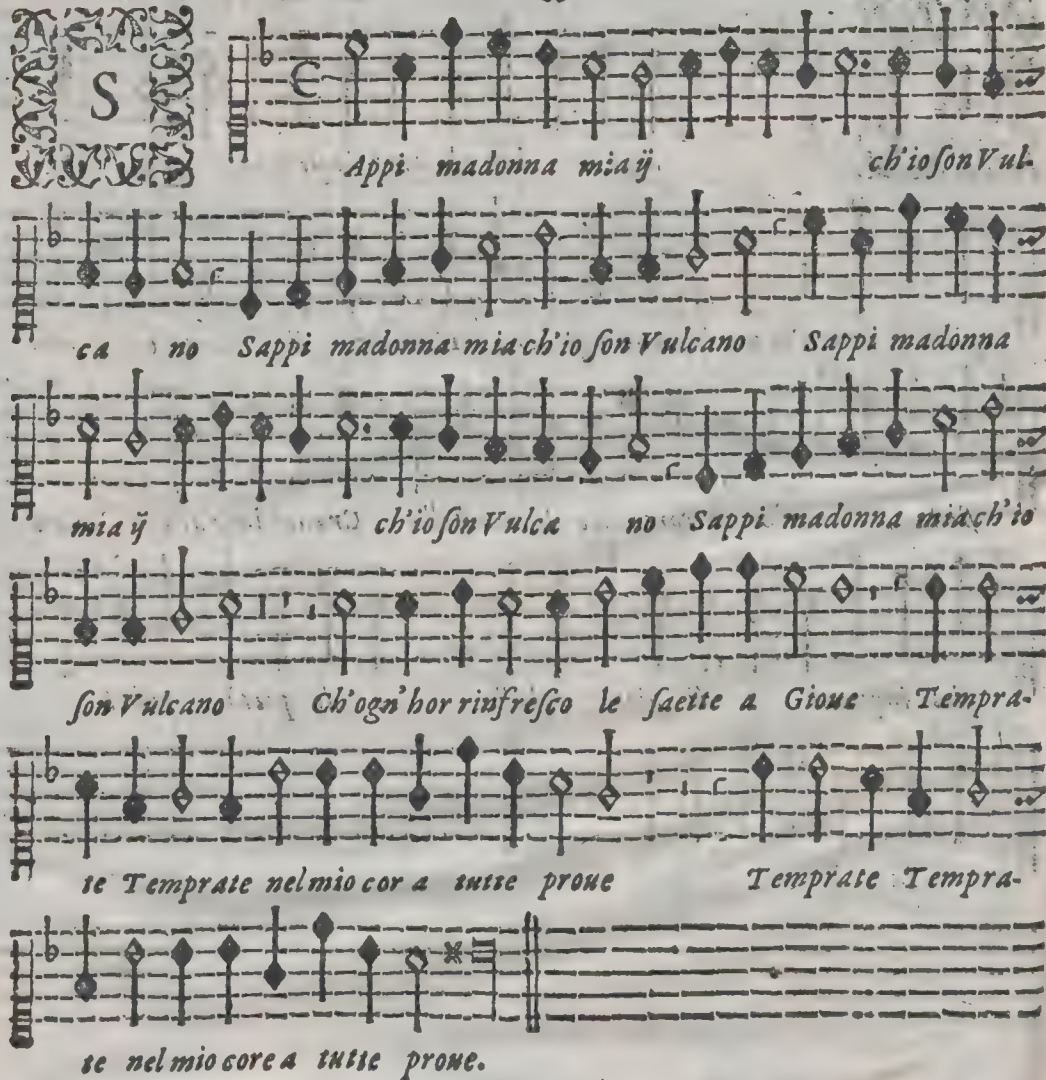 S
Appi madonna mia ij ch'io ſon Vul-
ca no Sappi madonna mia ch'io ſon Vulcano Sappi madonna
mia ij ch'io ſon Vulca no Sappi madonna mia ch'io
ſon Vulcano Ch'ogn'hor rinfreſco le ſaette a Gioue Tempra-
te Temprate nel mio cor a tutte proue Temprate Tempra-
te nel mio core a tutte proue.